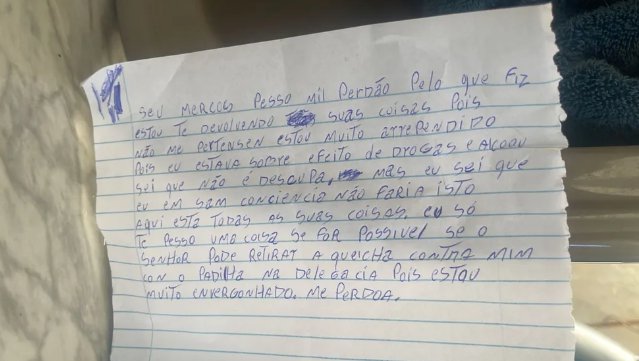 seu MERCOS Pesso Mil Perdão Pelo que Fiz
estou Te Devolvendo suas coisas Pois
Não me Pertensen estou Muito arrePendido
Pois eu estava sobre efeito de Drogas e Alcoou
sei que Não é Desculpa, mas eu sei que
eu em sam conciencia Não Faria isto
Aqui esta Todas as suas coisas, eu só
Te Pesso uma coisa se FoR Possivel se o
senhor Pode ReTiRaR A queicha conTRa MiM
con o Padilha na Delegacia Pois esTou
Muito enveRgonhado. Me PeRDoa.